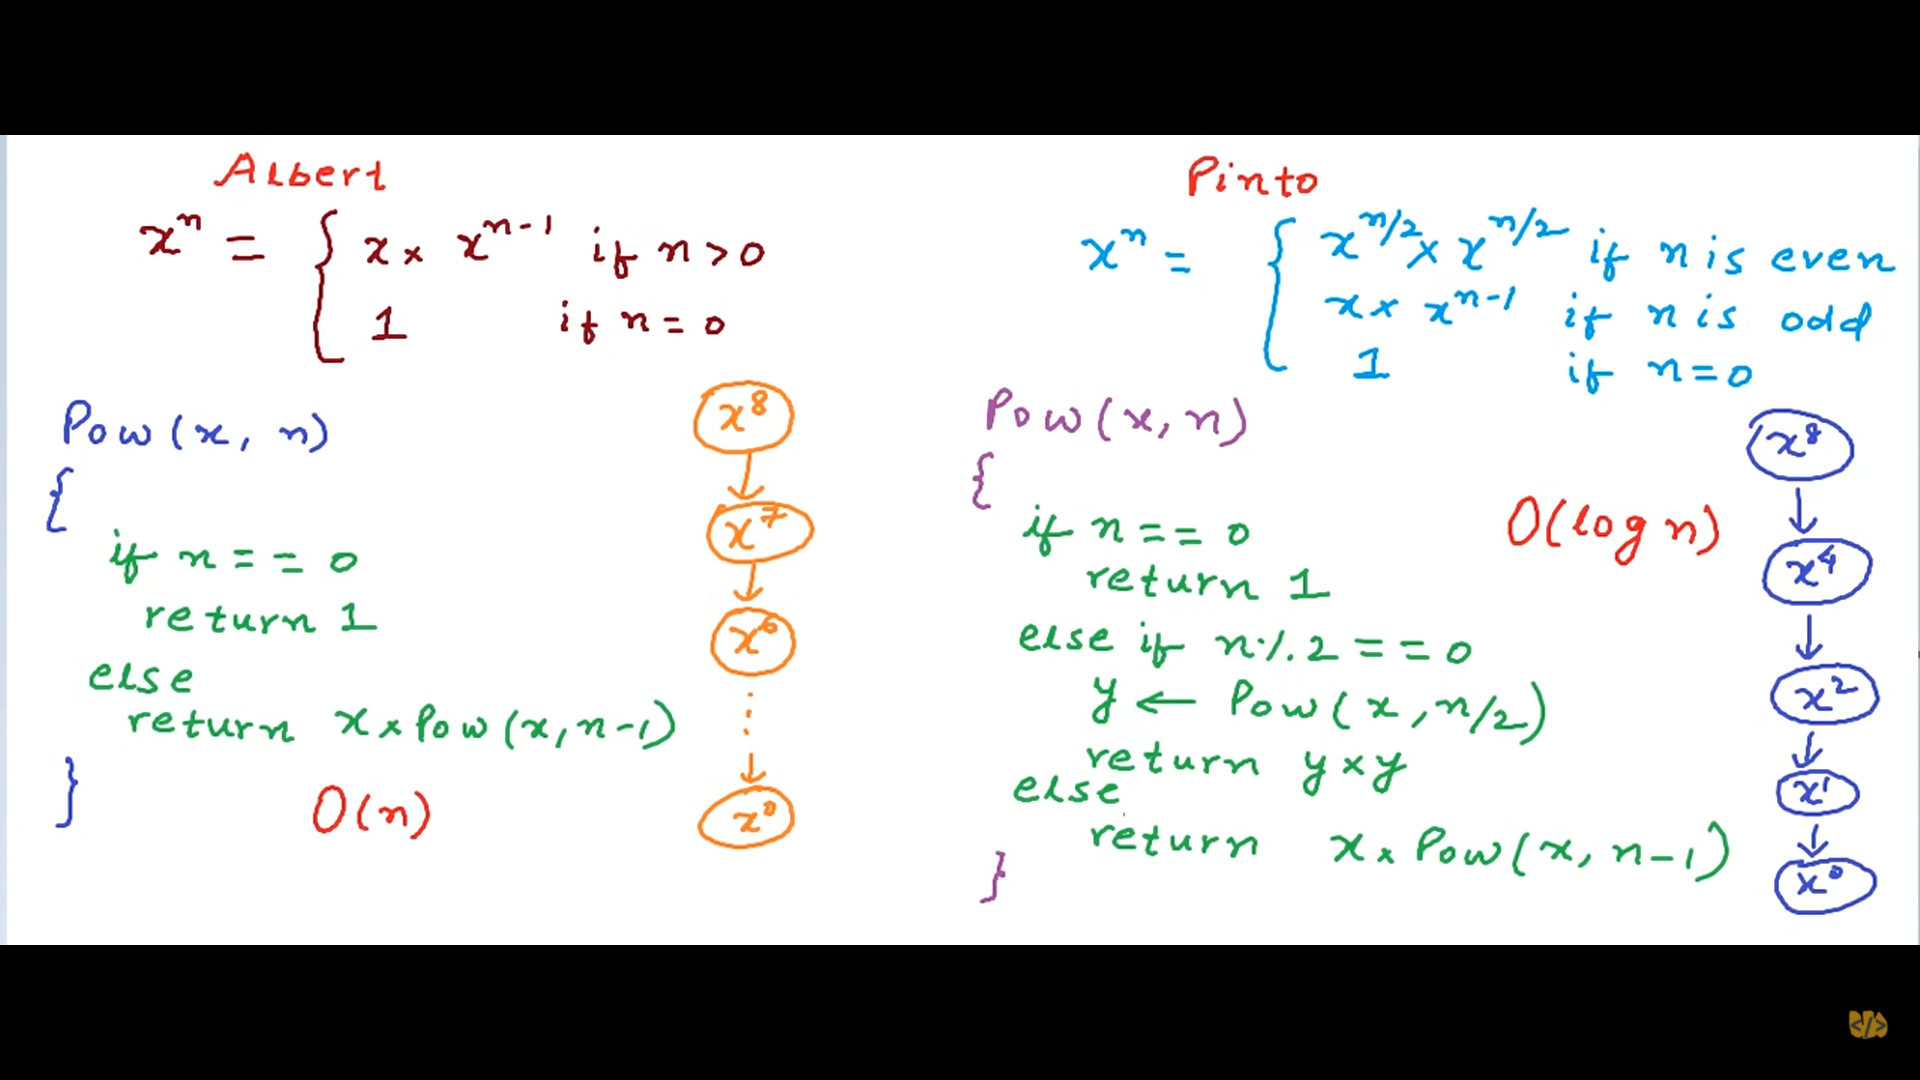 Albert
xⁿ = { x × xⁿ⁻¹ if n > 0
1 if n = 0
Pow(x, n)
{
if n == 0
return 1
else
return x × Pow(x, n-1)
}
O(n)
x⁸
x⁷
x⁶
x⁰
Pinto
xⁿ = { x^(n/2) × x^(n/2) if n is even
x × xⁿ⁻¹ if n is odd
1 if n = 0
Pow(x, n)
{
if n == 0
return 1
else if n % 2 == 0
y ← Pow(x, n/2)
return y × y
else
return x × Pow(x, n-1)
}
O(log n)
x⁸
x⁴
x²
x¹
x⁰